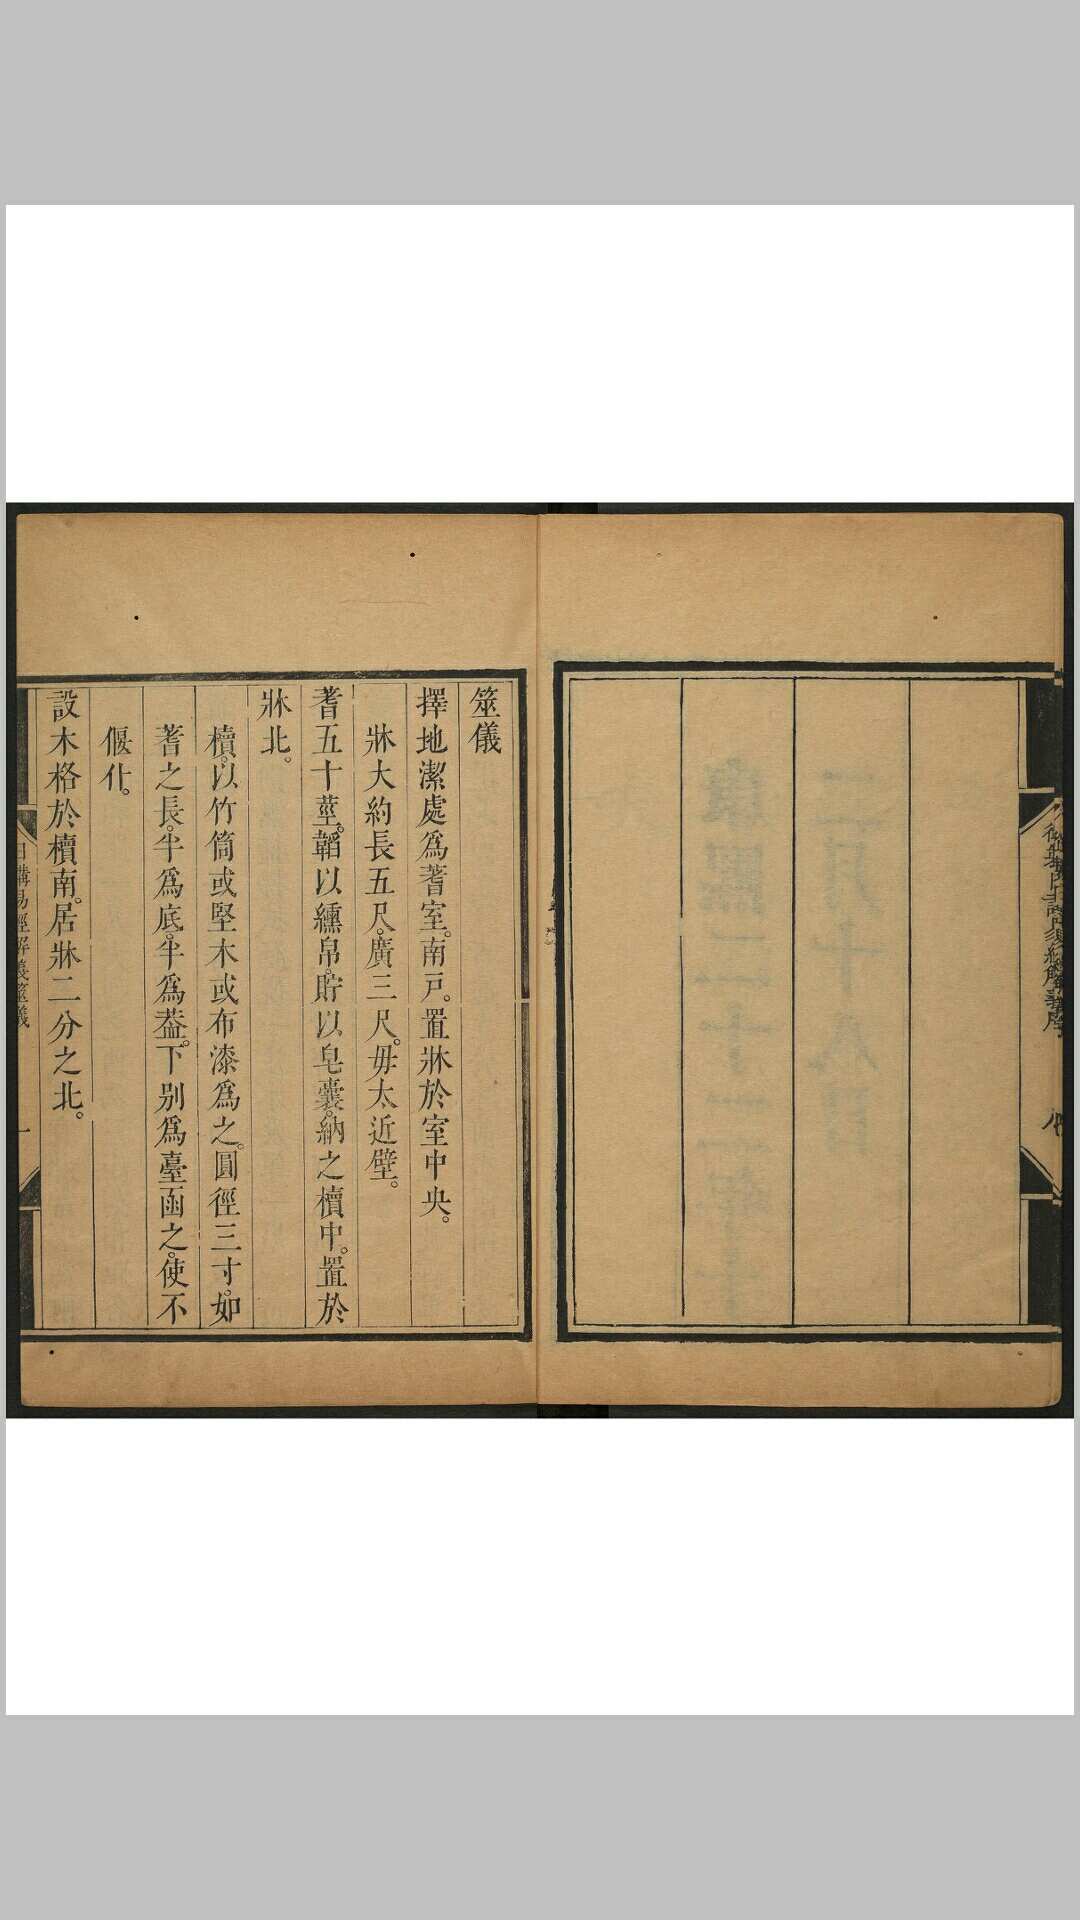 筮儀
擇地潔處爲蓍室。南戸。置牀於室中央。
牀大約長五尺。廣三尺。毋太近壁。
蓍五十莖。韜以纁帛。貯以皂囊。納之櫝中。置於
牀北。
櫝。以竹筒或堅木或布漆爲之。圓徑三寸。如
蓍之長。半爲底。半爲葢。下别爲臺函之。使不
偃仆。
設木格於櫝南。居牀二分之北。
日講易經解義筮儀
一